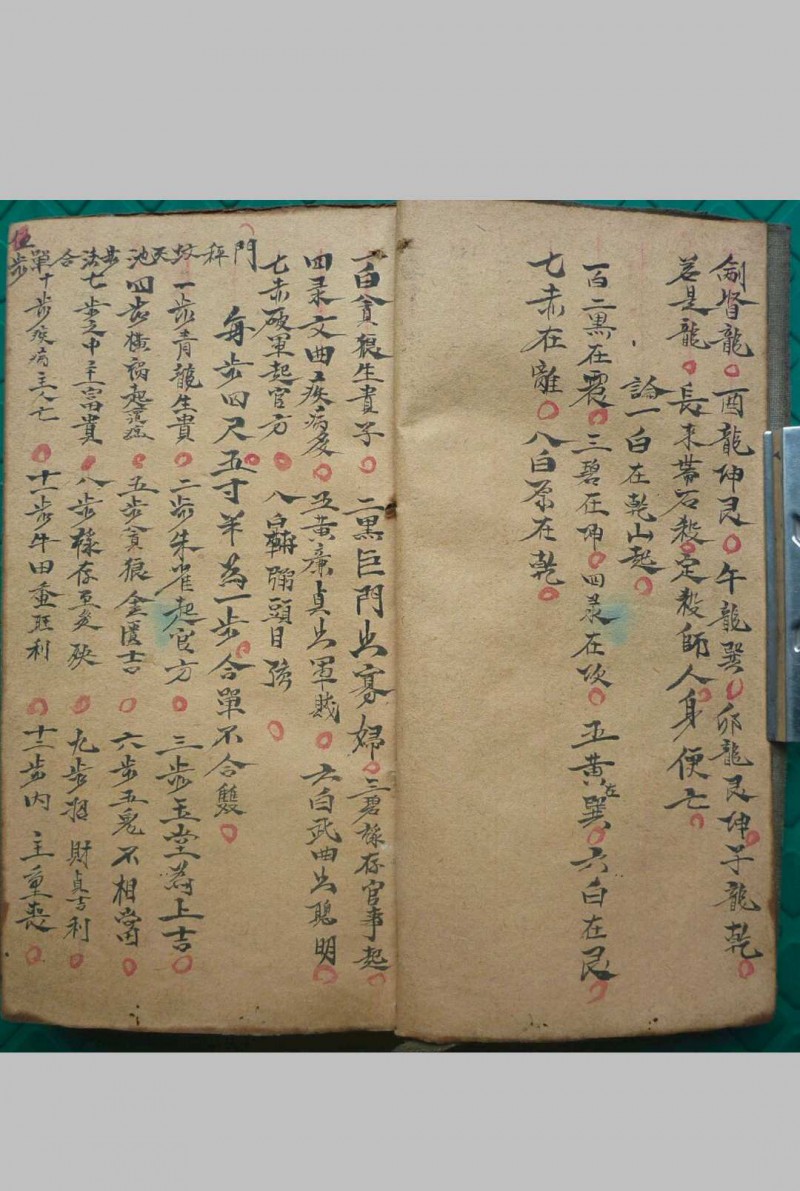 督龍 酉龍坤艮 午龍巽 卯龍艮坤 子龍乾
若是龍 長來帶石殺 定殺師人身便亡
論一白在乾山起
一百二黑在震 三碧在坤 四彔在坎 五黄在巽 六白在艮
七赤在離 八白原在乾
一白貪狼生貴子 二黑巨門出寡婦 三碧祿存官事起
四彔文曲主疾病 五黄廉貞出軍賊 六白武曲出聰明
七赤破軍起官方 八白輔弼頭目
每步四尺五寸 羊為一步 合單不合雙
門秤坟天池步法合單步
一步青龍生貴 二步朱雀起官方 三步玉堂為上吉
四步橫禍起 五步貪狼金匱吉 六步五鬼不相當
七步之中主富貴 八步祿存 九步招財貞吉利
十步疾病主人亡 十一步牛田蚕旺利 十二步内主重喪